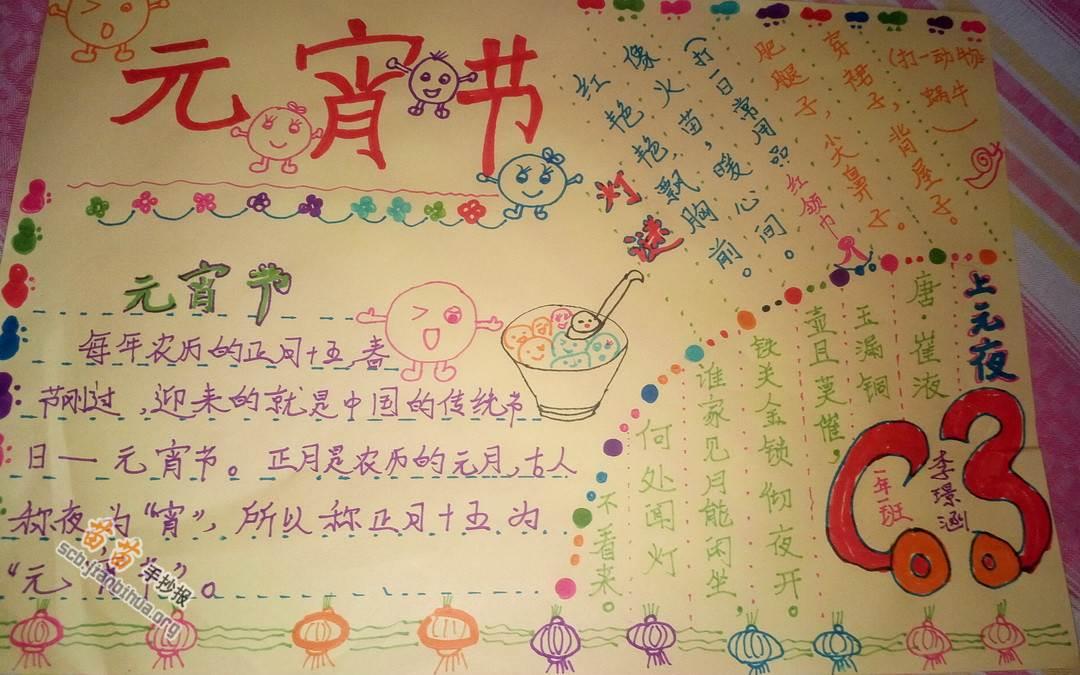 元宵节
元宵节
每年农历的正月十五,春
节刚过,迎来的就是中国的传统节
日一元宵节。正月是农历的元月,古人
称夜为“宵”,所以称正月十五为
“元宵节”。
灯谜
红艳艳,飘胸前。
像火苗,暖心间。
(打一日常用品
红领巾
肥腿子,尖鼻子。
穿裙子,背屋子。
(打一动物
蜗牛)
上元夜
唐·崔液
玉漏铜
壶且莫催,
铁关金锁彻夜开。
谁家见月能闲坐,
何处闻灯
不看来。
一年班
李璟涵
苗苗手抄报
scb.jianbihua.org